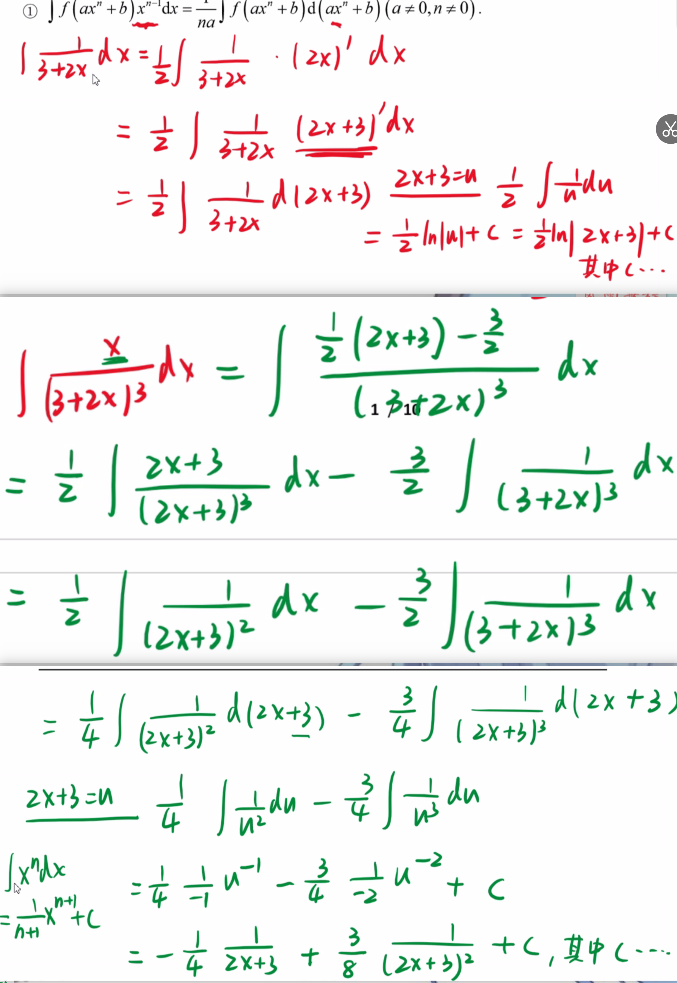 ① ∫ f(axⁿ + b)xⁿ⁻¹dx = 1/na ∫ f(axⁿ + b)d(axⁿ + b)(a ≠ 0, n ≠ 0).
∫ 1/(3+2x) dx = 1/2 ∫ 1/(3+2x) · (2x)' dx
= 1/2 ∫ 1/(3+2x) (2x+3)' dx
= 1/2 ∫ 1/(3+2x) d(2x+3) 2x+3=u 1/2 ∫ 1/u du
= 1/2 ln|u| + C = 1/2 ln|2x+3| + C
其中C…
∫ x/(3+2x)³ dx = ∫ (1/2(2x+3) - 3/2)/(3+2x)³ dx
1 / 10
= 1/2 ∫ (2x+3)/(2x+3)³ dx - 3/2 ∫ 1/(3+2x)³ dx
= 1/2 ∫ 1/(2x+3)² dx - 3/2 ∫ 1/(3+2x)³ dx
= 1/4 ∫ 1/(2x+3)² d(2x+3) - 3/4 ∫ 1/(2x+3)³ d(2x+3)
2x+3=u 1/4 ∫ 1/u² du - 3/4 ∫ 1/u³ du
∫xⁿdx
= 1/(n+1) xⁿ⁺¹+C
= 1/4 1/-1 u⁻¹ - 3/4 1/-2 u⁻² + C
= - 1/4 1/(2x+3) + 3/8 1/(2x+3)² + C, 其中C…